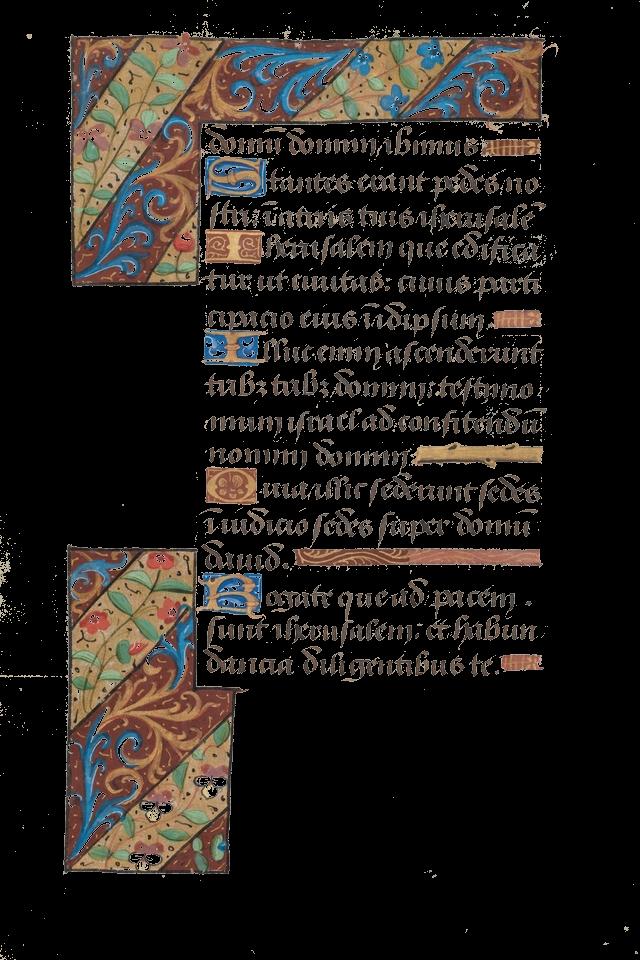 domū domini ibimus
Stantes erant pedes no
stri: ī atriis tuis iherusalē
Iherusalem que edifica
tur ut ciuitas: cuius parti
cipacio eius ī idipsum.
Illuc enim ascenderunt
tribꝫ tribꝫ domini: testimo
nium israel ad confitendū
nomini domini.
Quia illic sederunt sedes
ī iudicio sedes super domū
dauid.
Rogate que ad pacem.
sunt iherusalem: et habun
dancia diligentibus te.